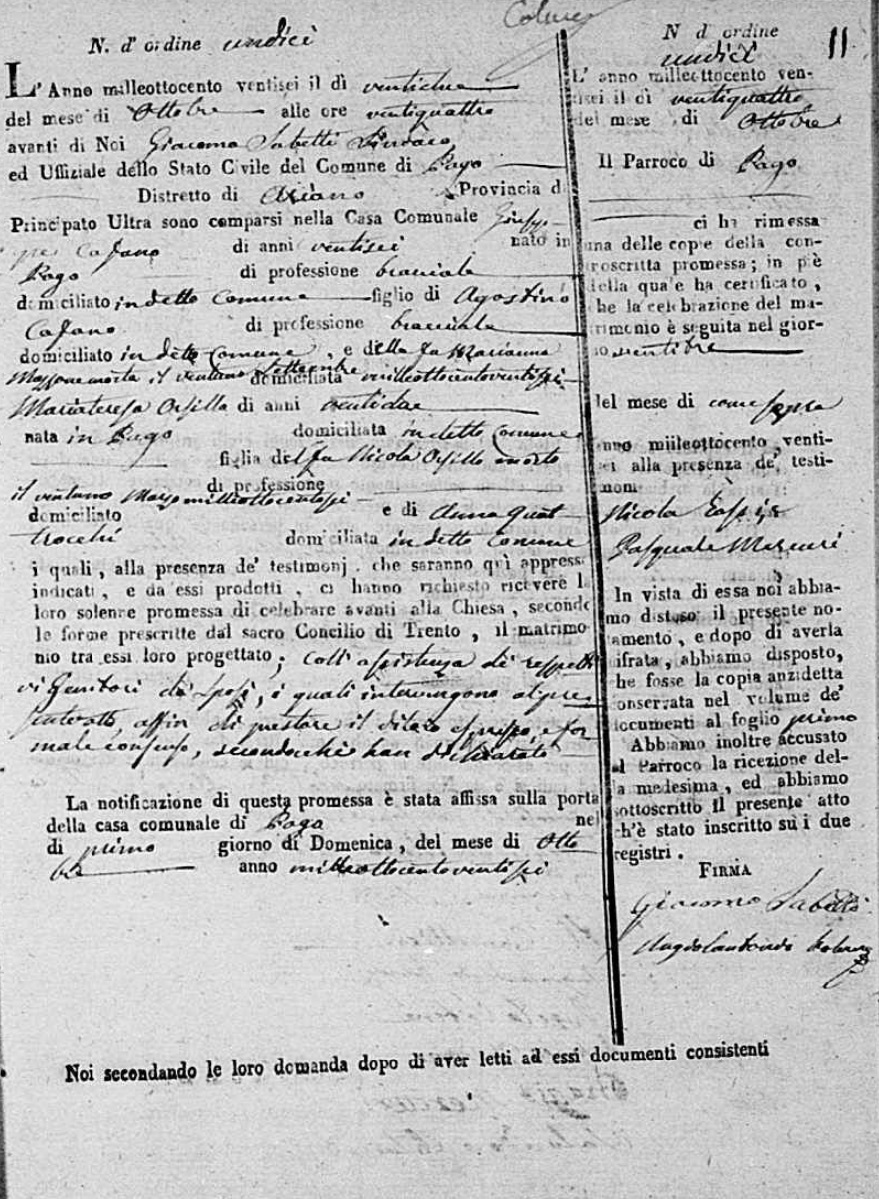 N. d' ordine undici
L' Anno milleottocento ventisei il dì ventidue
del mese di Ottobre alle ore ventiquattro
avanti di Noi Giacomo Sabetti Sindaco
ed Uffiziale dello Stato Civile del Comune di Pago
Distretto di Ariano Provincia d
Principato Ultra sono comparsi nella Casa Comunale Giusep
pe Cafano di anni ventisei nato in
Pago di professione bracciale
domiciliato in detto Comune figlio di Agostino
Cafano di professione bracciale
domiciliato in detto Comune, e della fu Marianna
Mazzone morta il ventuno Settembre domiciliata milleottocentoventisei
Mariateresa Orsillo di anni ventidue
nata in Pago domiciliata in detto Comune
figlia del fu Nicola Orsillo morto
di professione
il ventuno Marzo milleottocentosei
domiciliato e di Anna Quat
trocchi domiciliata in detto Comune
i quali, alla presenza de' testimonj. che saranno quì appress
indicati, e da essi prodotti, ci hanno richiesto ricevere l
loro solenne promessa di celebrare avanti alla Chiesa, secondo
le forme prescritte dal sacro Concilio di Trento, il matrimo
nio tra essi loro progettato; coll assistenza di rispetti
vi Genitori di Sposi, i quali intervengono al pre
sente atto affin di prestare il di loro espresso, e for
male consenso, secondochè han dichiarato
La notificazione di questa promessa è stata affissa sulla porta
della casa comunale di Pago nel
di primo giorno di Domenica, del mese di Otto
bre anno milleottocentoventisei
N d' ordine
undici 11
L' anno milleottocento ven-
tisei il dì ventiquattro
del mese di Ottobre
Il Parroco di Pago
ci ha rimessa
una delle copie della con-
troscritta promessa; in piè
della quale ha certificato,
he la celebrazione del ma-
trimonio è seguita nel gior-
no ventitre
del mese di come sopra
anno milleottocento venti-
sei alla presenza de' testi-
moni
Nicola
Pasquale Mercuri
In vista di essa noi abbia-
mo disteso il presente no-
tamento, e dopo di averla
cifrata, abbiamo disposto,
he fosse la copia anzidetta
conservata nel volume de'
documenti al foglio primo
Abbiamo inoltre accusato
al Parroco la ricezione del-
la medesima, ed abbiamo
sottoscritto il presente atto
ch'è stato inscritto su i due
registri.
FIRMA
Giacomo Sabetti
Noi secondando le loro domanda dopo di aver letti ad essi documenti consistenti